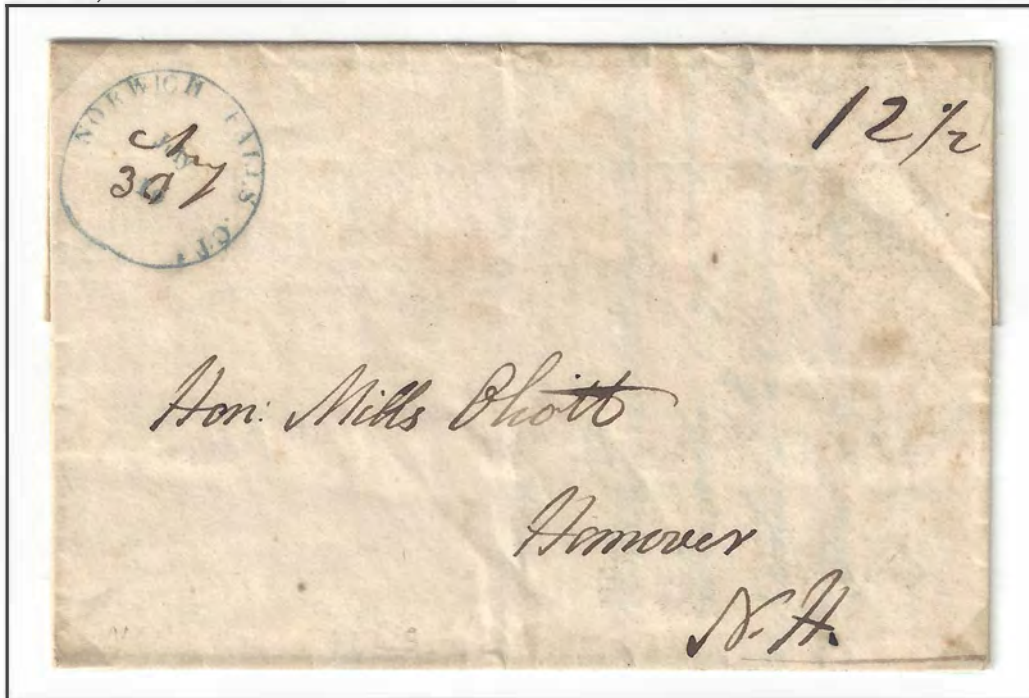 NORWICH FALLS CT.
30
12 1/2
Hon: Mills Olcott
Hanover
N. H.